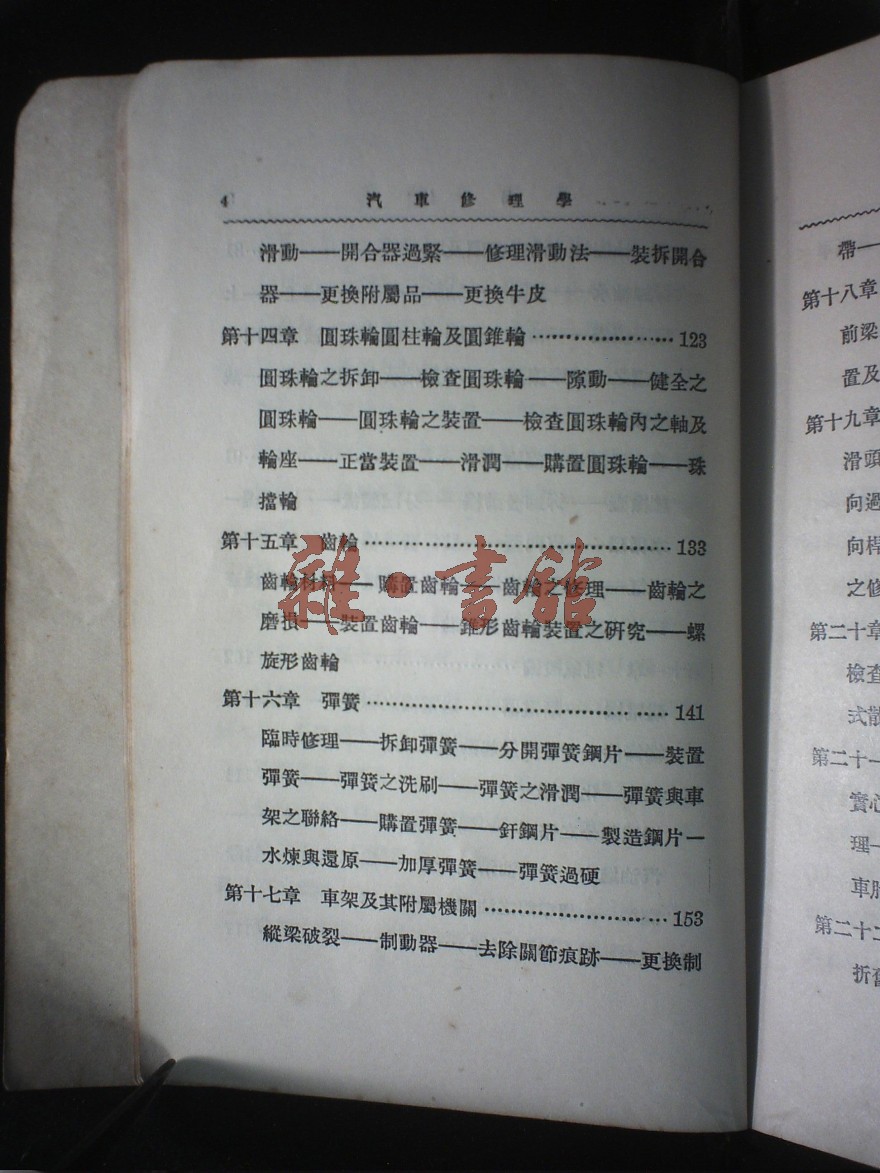 4 汽車修理學
滑動——開合器過緊——修理滑動法——裝拆開合
器——更換附屬品——更換牛皮
第十四章 圓珠輪圓柱輪及圓錐輪 …………………123
圓珠輪之拆卸——檢查圓珠輪——隙動——健全之
圓珠輪——圓珠輪之裝置——檢查圓珠輪內之軸及
輪座——正當裝置——滑潤——購置圓珠輪——珠
擋輪
第十五章 齒輪 ……………………………………133
齒輪材料——購置齒輪——齒輪之修理——齒輪之
磨損——裝置齒輪——錐形齒輪裝置之研究——螺
旋形齒輪
第十六章 彈簧 ……………………………………141
臨時修理——拆卸彈簧——分開彈簧鋼片——裝置
彈簧——彈簧之洗刷——彈簧之滑潤——彈簧與車
架之聯絡——購置彈簧——釬鋼片——製造鋼片—
水煉與還原——加厚彈簧——彈簧過硬
第十七章 車架及其附屬機關 ………………………153
縱梁破裂——制動器——去除關節痕跡——更換制
雜·書館
帶—
第十八章
前梁
置及
第十九章
滑頭
向過
向桿
之修
第二十章
檢查
式散
第二十一
實心
理—
車胎
第二十二
折舊